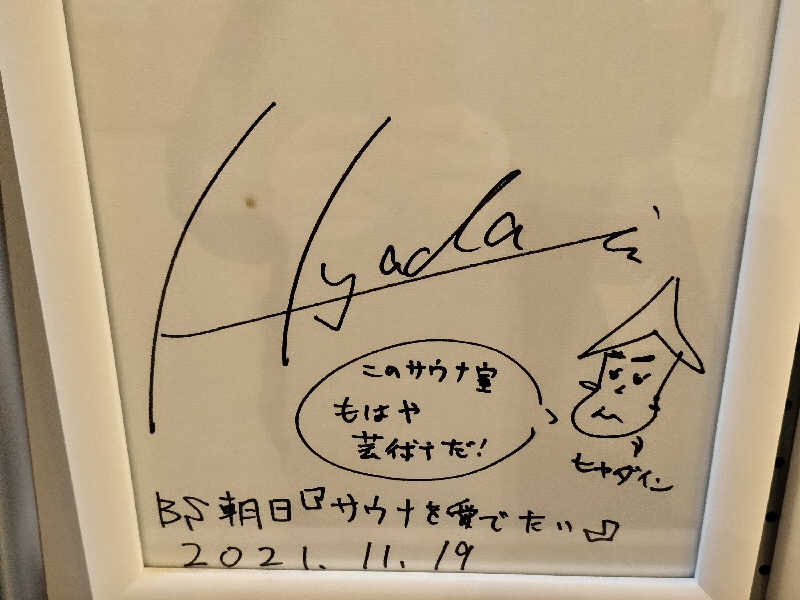 Hyadain
このサウナ室
もはや
芸術だ!
ヒャダイン
BS朝日『サウナを愛でたい』
2021.11.19